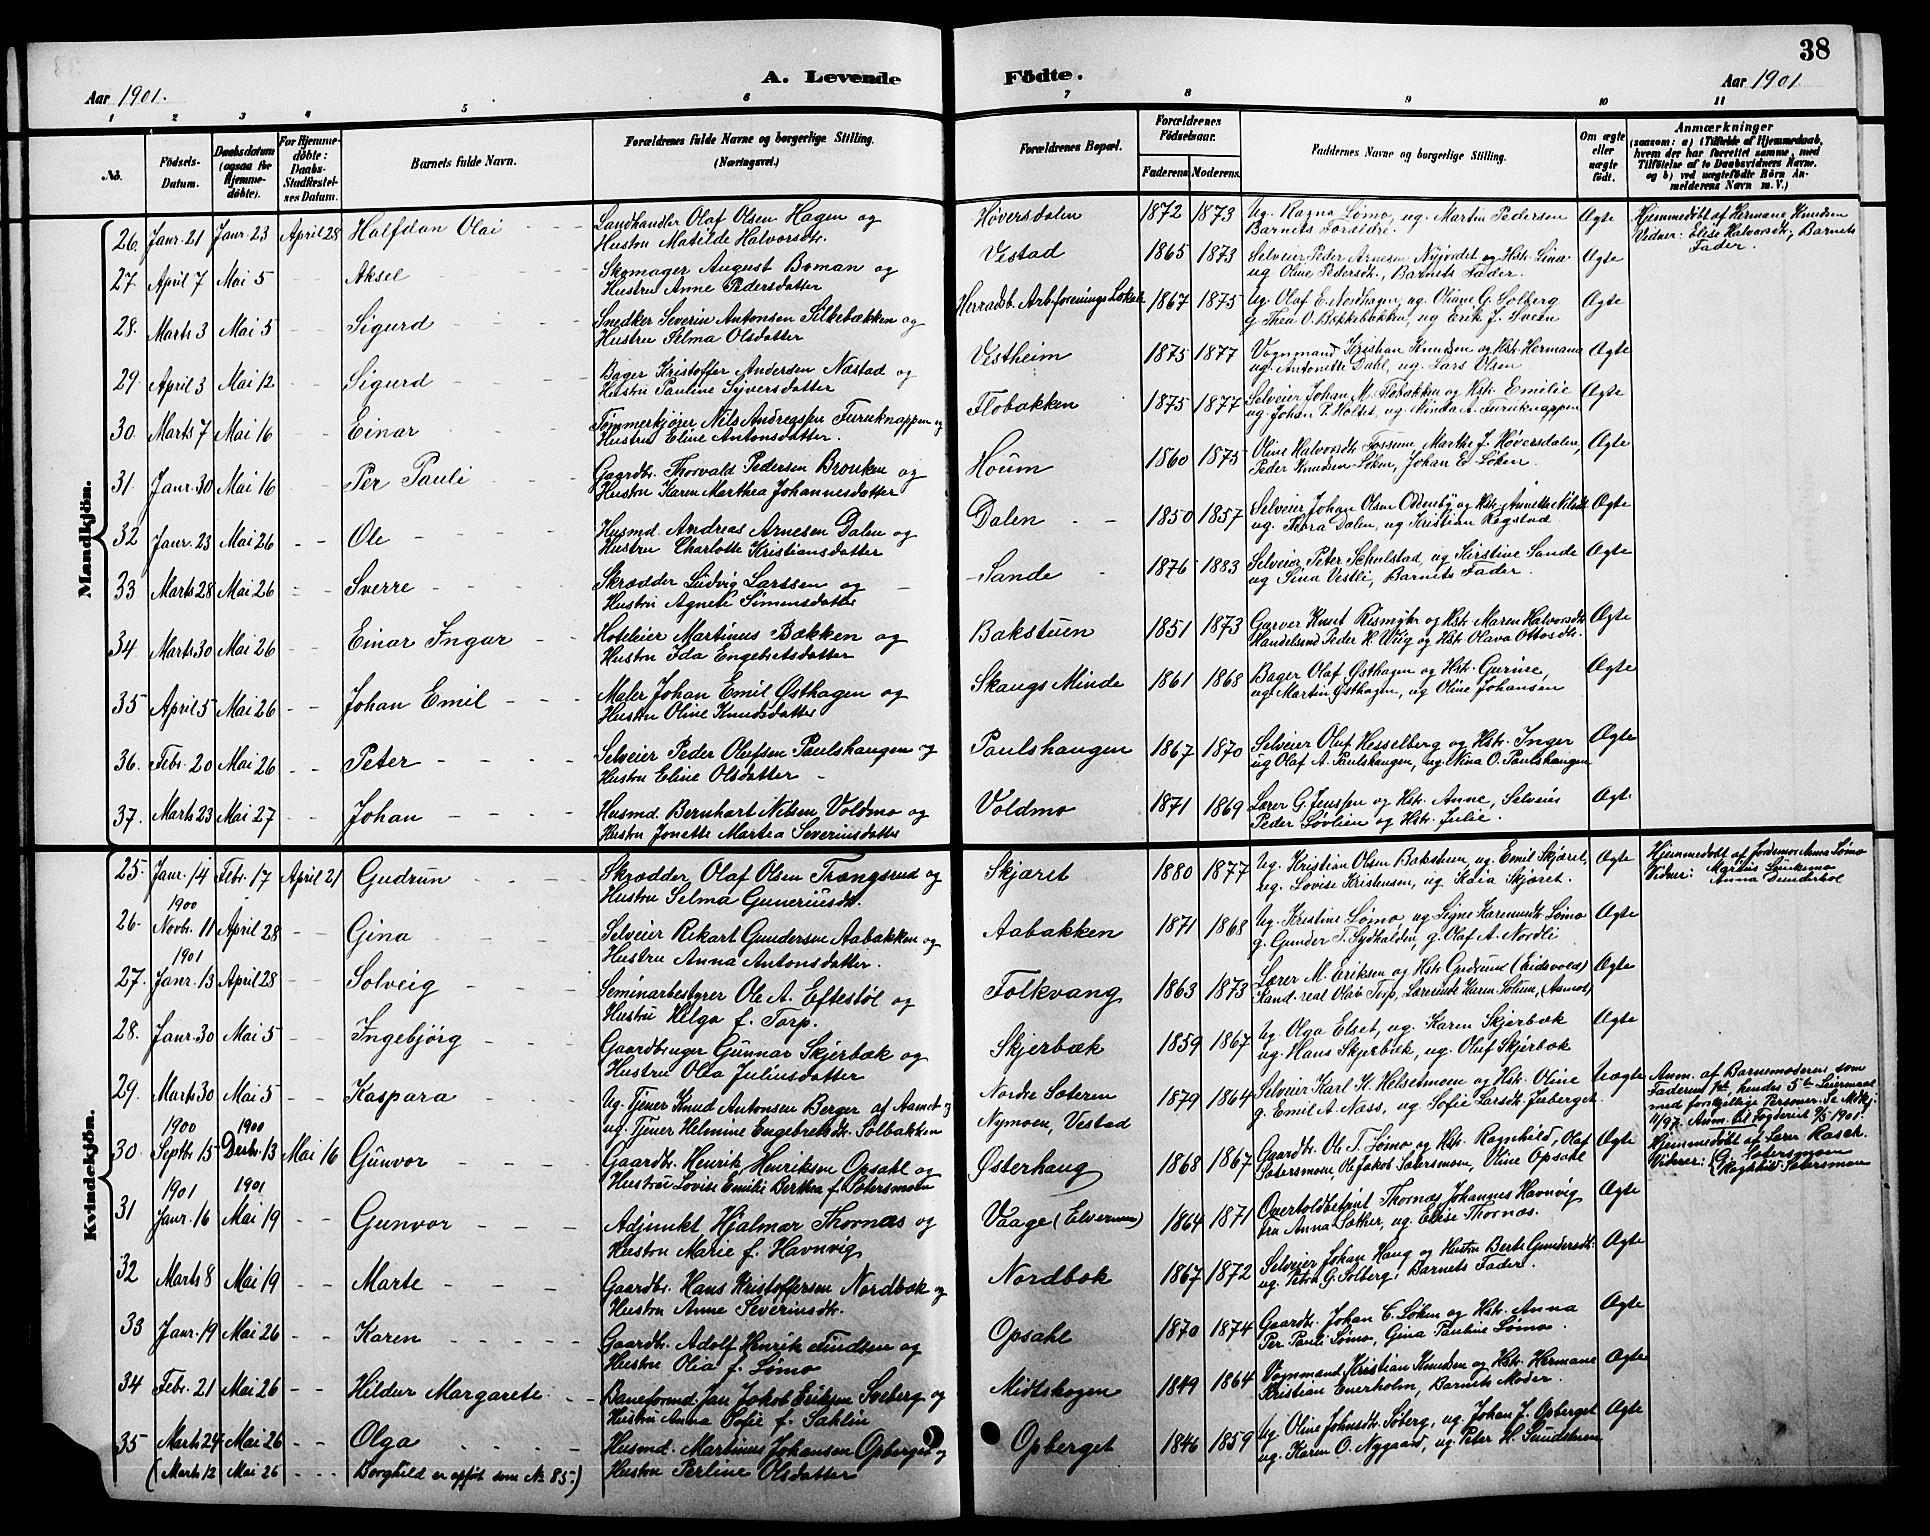 38
A. Levende Födte.
Aar 1901.
Aar 1901
1 2 3 4 5 6 7 8 9 10 11
No.
Födsels-Datum.
Daabsdatum (ogsaa for Hjemmedöbte).
For Hjemmedöbte: Daabs-Stadfæstelses Datum.
Barnets fulde Navn.
Forældrenes fulde Navne og borgerlige Stilling. (Næringsvei.)
Forældrenes Bopæl.
Forældrenes Födselsaar.
Faderens Moderens.
Faddernes Navne og borgerlige Stilling.
Om ægte eller uægte født.
Anmærkninger
(saasom: a) Tilfælde af Hjemmedaab, hvem der har forrettet samme, med Tilföielse af to Daabsvidners Navne, og b) ved uægtefödte Börn Anmelderens Navn m. V.)
Mandkjön.
26. Janr. 21 Janr. 23 April 28 Halfdan Olai - - -
Landhandler Olaf Olsen Hagen og
Hustru Matilde Halvorsdtr.
Høversdalen 1872 1873
Ug. Ragna Lømo, ug. Martin Pedersen
Barnets Forældre.
Ægte
Hjemmedøbt af Hermane Knudsen
Vidner: Elise Halvorsdtr, Barnets
Fader.
27. April 7 Mai 5 - - Aksel - - -
Skomager August Boman og
Hustru Anne Pedersdatter
Vestad 1865 1873
Selveier Peder Arnesen Nyjordet og Hstr. Lina
ug. Oline Pedersdt., Barnets Fader.
Ægte
28. Marts 3 Mai 5 - - Sigurd - - -
Snedker Severin Antonsen Silkebækken og
Hustru Selma Olsdatter
Herradsb. Arb.forenings Lokale 1867 1875
Ug. Olaf E. Nordhagen, ug. Oline G. Solberg
g. Thea O. Bækkebakken, ug Erik J. Sveen
Ægte
29. April 3 Mai 12 - - Sigurd - - -
Bager Kristoffer Andersen Næstad og
Hustru Pauline Syversdatter
Vestheim 1875 1877
Vognmand Kristian Knudsen og Hstr. Hermana
ug. Antonette Dahl, ug. Lars Olsen
Ægte
30. Marts 7 Mai 16 - - Einar - - -
Tømmerkjører Nils Andreassen Furuknappen og
Hustru Eline Antonsdatter.
Flobakken 1875 1877
Selveier Johan M. Flobakken og Hstr. Emilie
ug Johan P. Holtet, ug. Minda A. Furuknappen
Ægte
31. Janr. 30 Mai 16 - - Per Pauli - - -
Gaardbr. Thorvald Pedersen Brouken og
Hustru Karen Marthea Johannesdatter
Houm 1860 1875
Oline Halvorsdt. Fossum, Marthe J. Høversdalen,
Peder Knudsen Løken, Johan E. Løken.
Ægte
32 Janr. 23 Mai 26 - - Ole - - -
Husmd. Andreas Arnesen Dalen og
Hustru Charlotte Kristiansdatter
Dalen - - 1850 1857
Selveier Johan Olsen Oddenby og Hstr. Annette Nilsdt.
ug. Thora Dalen, ug Kristian Rogstad
Ægte
33 Marts 28 Mai 26 - - Sverre - - -
Skrædder Ludvig Larssen og -
Hustru Agnete Simensdatter
Sande - 1876 1883
Selveier Peter Schulstad, ug Kirstine Sande
ug Sina Vestli, Barnets Fader.
Ægte
34 Marts 30 Mai 26 - - Einar Ingar - -
Hoteleier Martinus Bækken og
Hustru Ida Engebretsdatter
Bakstuen 1851 1873
Garver Knut Rismyhr og Hstr. Maren Halvorsdt.
Handelsmd Peder H. Wiig og Hstr. Olava Ottosdt.
Ægte
35 April 5 Mai 26 - - Johan Emil - - -
Maler Johan Emil Østhagen og
Hustru Oline Knudsdatter
Skaugs Minde 1861 1868
Bager Olaf Østhagen og Hstr. Gurine,
ug. Martin Østhagen, ug Oline Johansen
Ægte
36. Febr. 20 Mai 26 - - Peter - - -
Selveier Peder Olufsen Paulshaugen og
Hustru Eline Olsdatter -
Paulshaugen 1867 1870
Selveier Oluf Hesselberg og Hstr. Inger
ug Olaf A. Paulshaugen, ug. Nina O. Paulshaugen
Ægte
37. Marts 23 Mai 27 - - Johan - - -
Husmd. Bernhart Nilsen Voldmo og
Hustru Jonette Martea Severinsdatter
Voldmo 1871 1869
Lærer G. Jenssen og Hstr. Anne, Selveier
Peder Løvlien og Hstr. Julie.
Ægt.
Kvindekjön.
25. Janr. 14 Febr. 17 April 21 Gudrun - - -
Skrædder Olaf Olsen Trangsrud og
Hustru Selma Guneriusdt.
Skjæret 1880 1877
Ug. Kristian Olsen Bakstuen, ug. Emil Skjæret,
ug. Lovise Kristensen, ug Kaia Skjæret.
Ægte
Hjemmedøbt af Jordemor Anna Lømo
Vidner: Martius
Anna Dunderhol
1900
26. Novb. 11 April 28 - - Gina - - -
Selveier Rikart Gundersen Aabakken og
Hustru Anna Antonsdatter.
Aabakken 1871 1868
Ug. Kristine Lømo ug Signe Karenusdt. Lømo
g. Gunder T. Sydhalden, g. Olaf A. Nordli
Ægte
1901
27. Janr. 13 April 28 - - Solveig - - -
Seminarbestyrer Ole A. Eftestøl og
Hustru Helga f. Torp.
Folkvang 1863 1873
Lærer M. Eriksen og Hstr. Gudrund (Eidsvold)
Kand. real Olav Torp, Lærerinde Karen Solum, (Aamot)
Ægte
28. Janr. 30 Mai 5 - - Ingebjörg - - -
Gaardbruger Gunnar Skjerbæk og
Hustru Olea Juliusdatter
Skjerbæk 1859 1867
Ug. Olga Elset, ug. Karen Skjerbæk
ug. Hans Skjerbæk, ug. Oluf Skjerbæk
Ægte
29. Marts 30 Mai 5 - - Kaspara - - -
Ug. Tjener Knud Antonsen Berger af Aamot og
ug. Tjener Helmine Engebretsdt. Solbakken
Nordre Sæteren
Nymoen, Vestad
1879 1864
Selveier Karl K. Helsetmoen og Hstr. Oline
g. Emil A. Næss, ug. Sofie Larsdt. Juberget.
Uægte
Anm. af Barnemoderen, som
Faderens 1ste, hendes 5te Leiermaal
med forskjellige Personer. Se Mdkj.
11/97. Anm. til Fogderiet 9/5 1901.
1900 1900
30. Septbr. 15 Decbr. 13 Mai 16 Gunvor - - -
Gaardbr. Henrik Henriksen Opsahl og
Hustru Lovise Emilie Berthea f. Sætersmoen
Østerhaug 1868 1867
Gaardbr. Ole T. Lømo og Hstr. Ragnhild, Olaf
Sætersmoen, Ole Jakob Sætersmoen, Oline Opsahl
Ægte
Hjemmedøbt af Lærer Rasch.
Vidner: G. Sætersmoen
Ragnhild Sætersmoen
1901 1901
31 Janr. 16 Mai 19 - - Gunvor - - -
Adjunkt Hjalmar Thornæs og
Hustru Marie f. Havnvig
Vaage (Elverum) 1864 1871
Overtoldbetjent Thornæs, Johannes Havnvig
Fru Anna Sæther, ug. Elise Thornæs.
Ægte
32 Marts 8 Mai 19 - - Marte - - -
Gaardbr. Hans Kristoffersen Nordbæk og
Hustru Anne Severinsdt.
Nordbæk 1867 1872
Selveier Johan Haug og Hustru Berte Gundersdt.
ug. Petra G. Solberg, Barnets Fader.
Ægte
33 Janr. 19 Mai 26 - - Karen - - -
Gaardbr. Adolf Henrik Findsen og
Hustru Olia f. Lømo
Opsahl 1870 1874
Gaardbr. Johan C. Løken og Hstr. Anna
Per Pauli Lømo, Gina Pauline Lømo.
Ægte
34 Febr. 21 Mai 26 - - Hildur Margarete - -
Baneformd. Jan Jakob Eriksen Sorberg og
Hustru Anna Sofie f. Sahlin
Midtskogen 1849 1864
Vognmand Kristian Knudsen og Hstr. Hermane
Kristian Enerholm, Barnets Moder.
Ægte
35 Marts 24 Mai 26 - - Olga - - -
Husmd. Martinus Johansen Opberget og
Hustru Perline Olsdatter
Opberget 1846 1859
Ug. Oline Johnsdt. Søberg, ug. Johan J. Opberget
ug. Karen O. Nygaard, ug. Peter H. Sundetmoen
Ægte
(Marts 12 Mai 26 - - - Borghild er opført som No 85.)